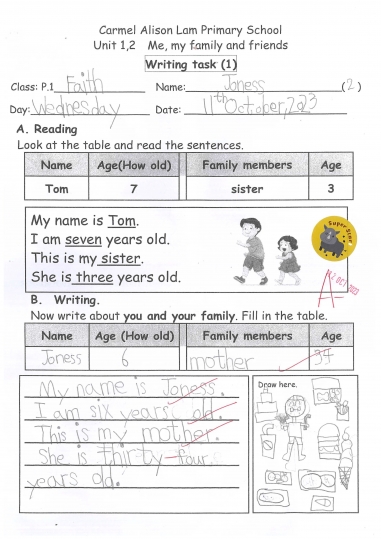 Carmel Alison Lam Primary School
Unit 1,2 Me, my family and friends
Writing task (1)
Class: P.1 Faith Name: Joness (2)
Day: Wednesday Date: 11th October, 2023
A. Reading
Look at the table and read the sentences.
Name Age(How old) Family members Age
Tom 7 sister 3
My name is Tom.
I am seven years old.
This is my sister.
She is three years old.
Super Star
A-
12 OCT 2023
B. Writing.
Now write about you and your family. Fill in the table.
Name Age (How old) Family members Age
Joness 6 mother 34
My name is Joness.
I am six years old.
This is my mother.
She is thirty-four
years old.
Draw here.